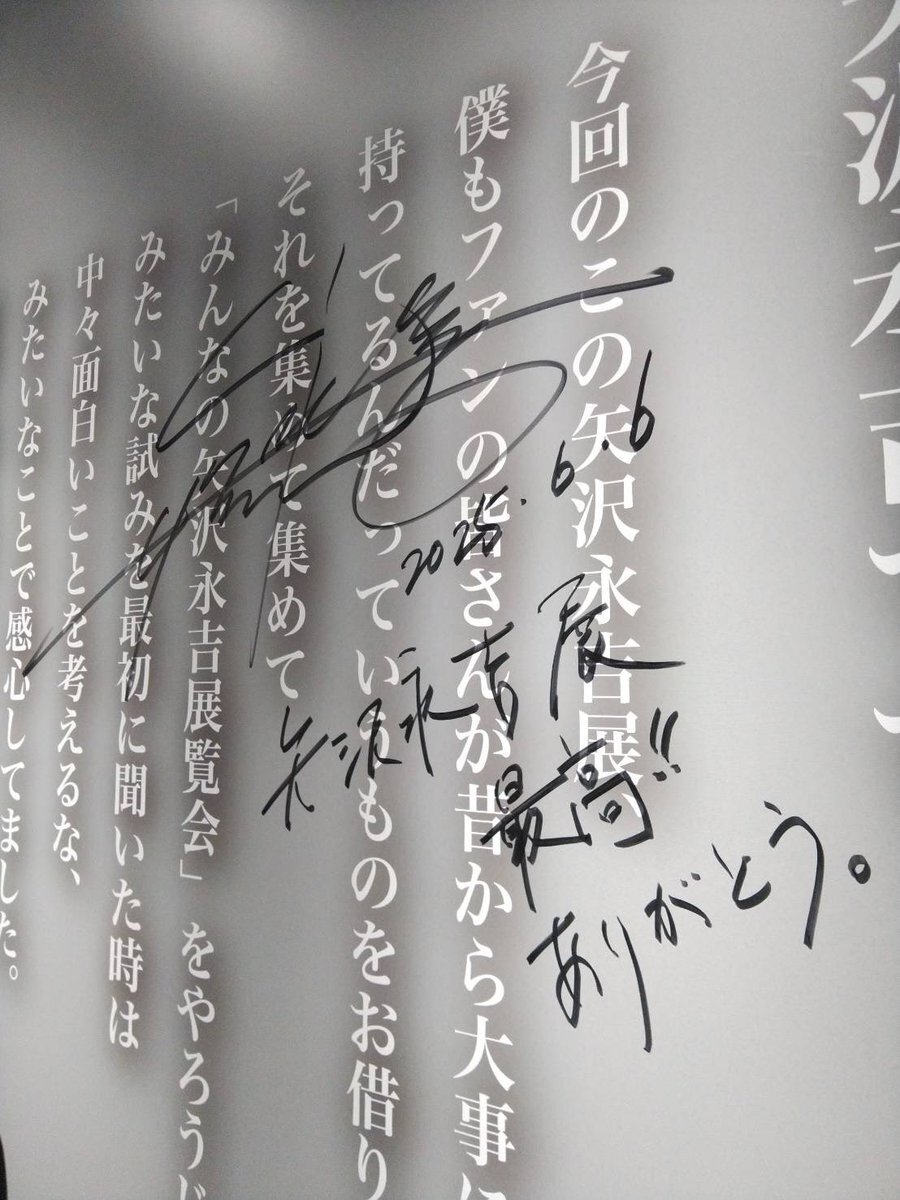 今回のこの矢沢永吉展、
僕もファンの皆さんが昔から大事に
持ってるんだっていうものをお借り
それを集めて集めて
「みんなの矢沢永吉展覧会」をやろうじ
みたいな試みを最初に聞いた時は
中々面白いことを考えるな、
みたいなことで感心してました。
2025.6.6
矢沢永吉展
最高!!
ありがとう。